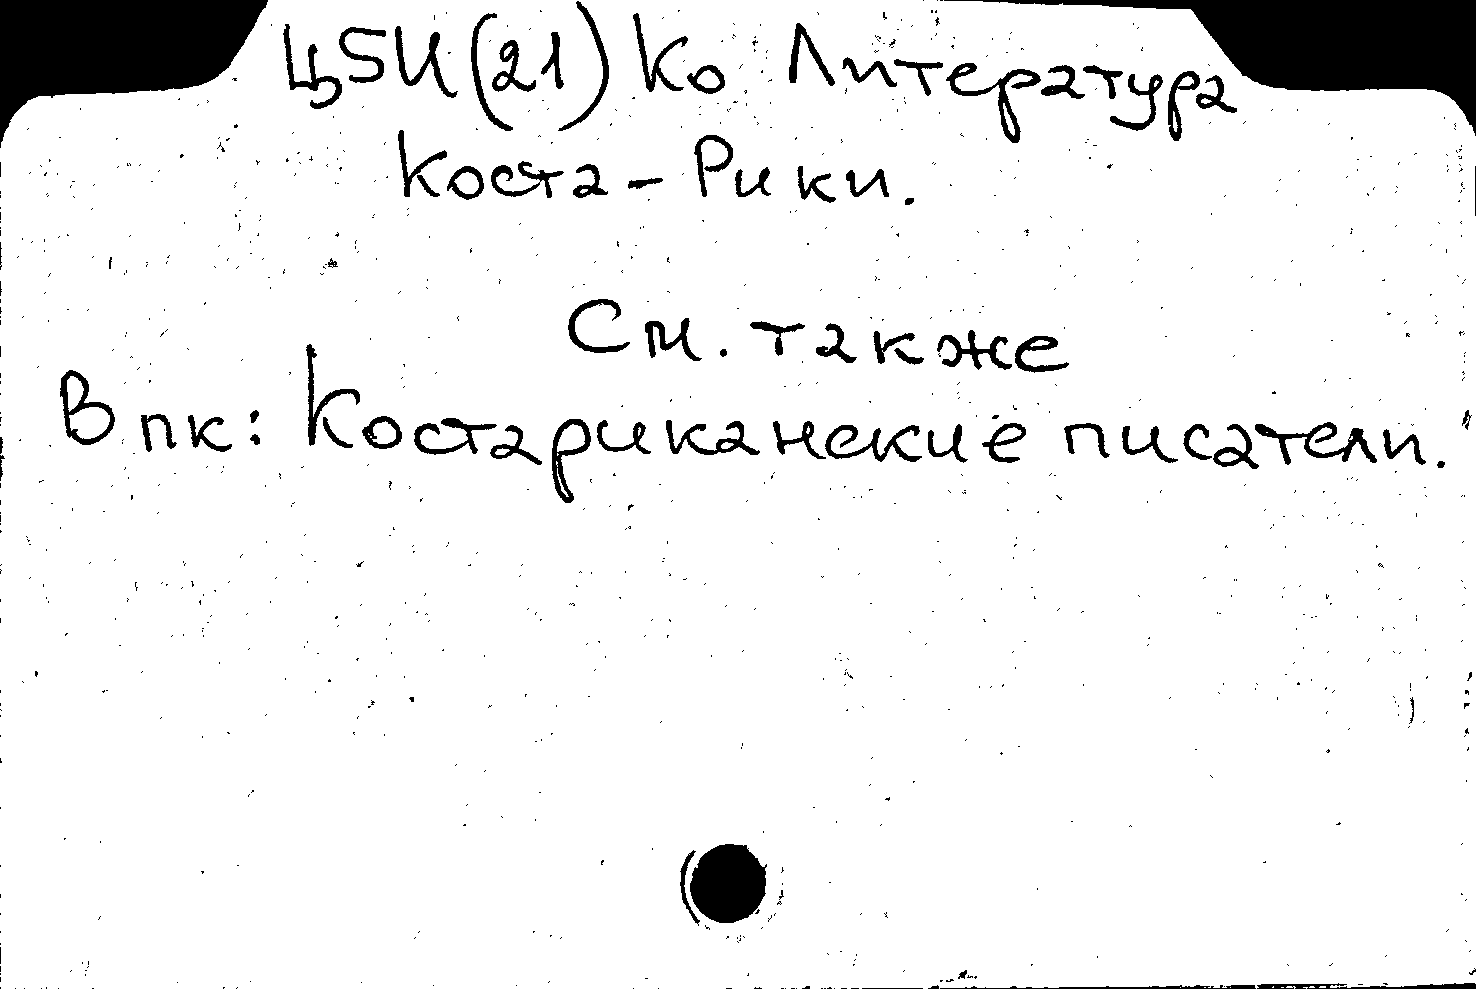 Ц5И(21)Ко Литература
Коста-Рики.
См. также
В пк: Костариканские писатели.